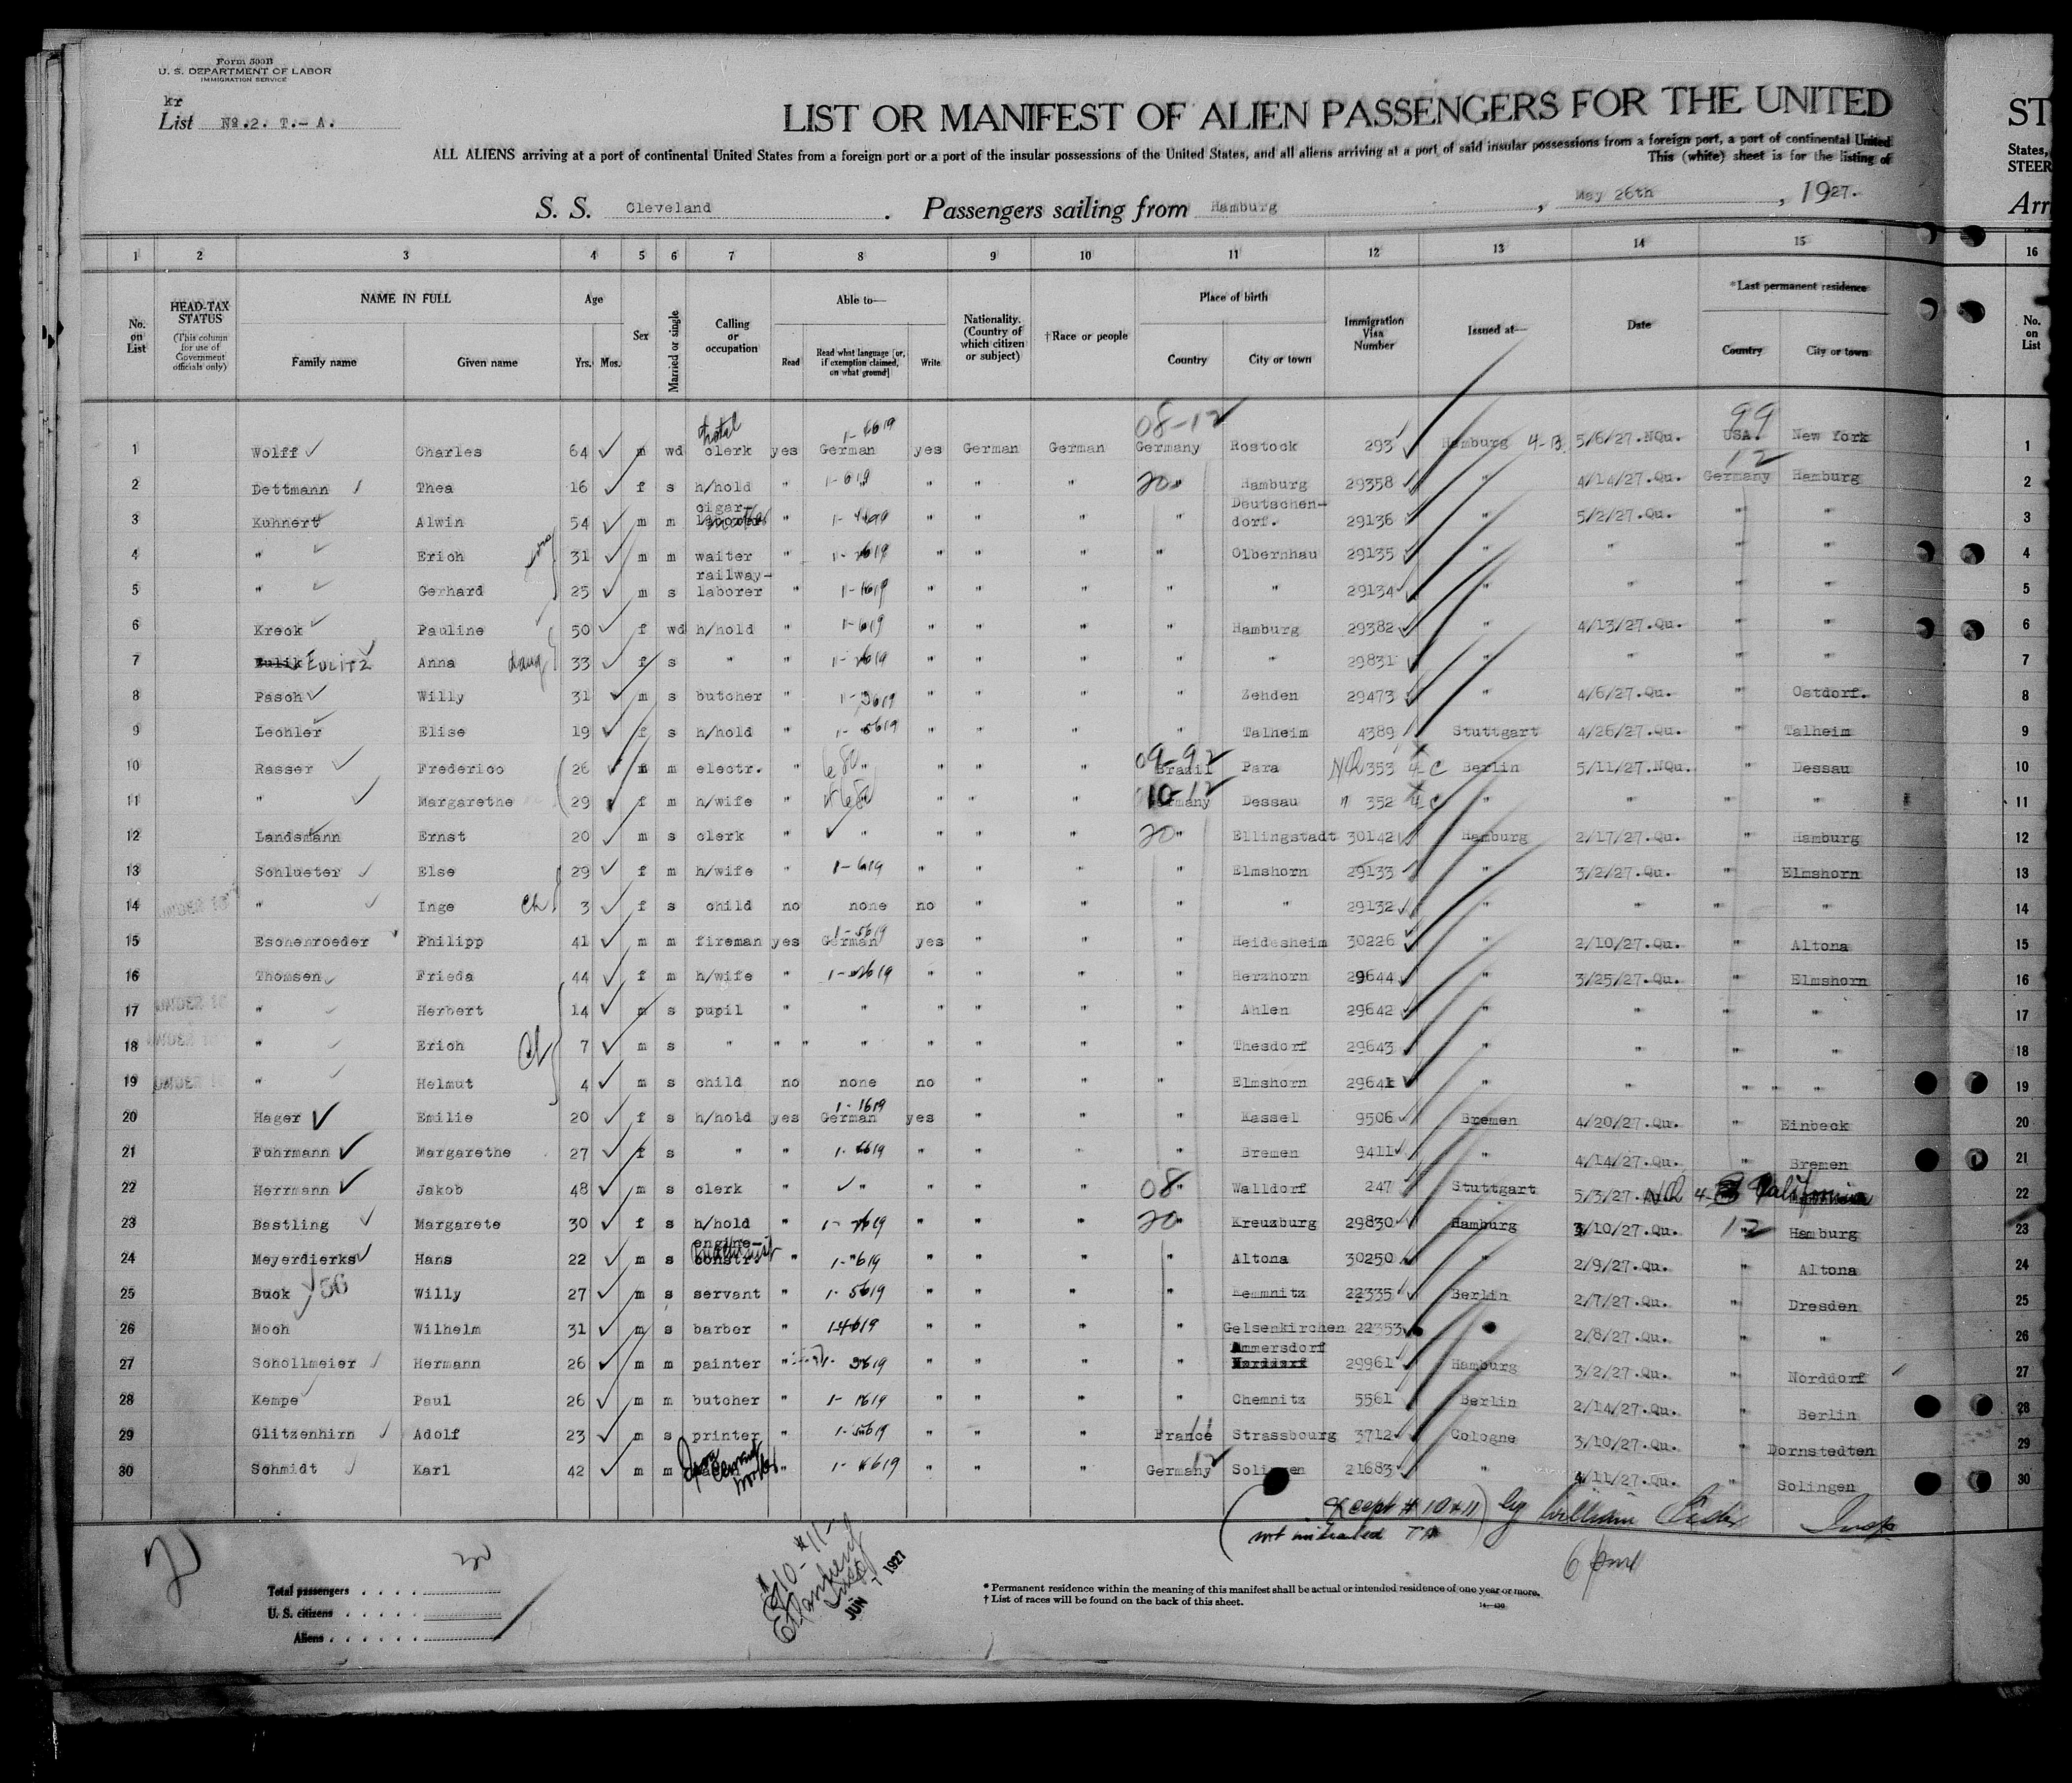 Form 500B
U. S. DEPARTMENT OF LABOR
IMMIGRATION SERVICE
kr
List No.2. T.- A.
LIST OR MANIFEST OF ALIEN PASSENGERS FOR THE UNITED
ST
ALL ALIENS arriving at a port of continental United States from a foreign port or a port of the insular possessions of the United States, and all aliens arriving at a port of said insular possessions from a foreign port, a port of continental United
States,
This (white) sheet is for the listing of
STEER
S. S. Cleveland. Passengers sailing from Hamburg, May 26th, 1927.
Arr
1 2 3 4 5 6 7 8 9 10 11 12 13 14 15 16
No. on List
HEAD-TAX STATUS (This column for use of Government officials only)
NAME IN FULL Family name Given name
Age Yrs. Mos.
Sex
Married or single
Calling or occupation
Able to— Read Read what language [or, if exemption claimed, on what ground] Write
Nationality. (Country of which citizen or subject)
†Race or people
Place of birth Country City or town
Immigration Visa Number
Issued at—
Date
*Last permanent residence Country City or town
No. on List
08-12 99
1 Wolff Charles 64 m wd hotel clerk yes German yes German German Germany Rostock 293 Hamburg 4-B 5/6/27.NQu. USA. New York 1
12
2 Dettmann Thea 16 f s h/hold " " " " " 20 " Hamburg 29358 " 4/14/27.Qu. Germany Hamburg 2
3 Kuhnert Alwin 54 m m cigar- " " " " Deutschen-dorf. 29136 " 5/2/27.Qu. " " 3
4 " Erich 31 m m waiter " " " " " Olbernhau 29135 " " " " 4
5 " Gerhard 25 m s railway-laborer " " " " " 29134 " " " " 5
6 Kreck Pauline 50 f wd h/hold " " " " " Hamburg 29382 " 4/13/27.Qu. " " 6
7 Zulik Eulitz Anna daug 33 f s " " " " " " 29831 " " " " 7
8 Pasch Willy 31 m s butcher " " " " " Zehden 29473 " 4/6/27.Qu. " Ostdorf. 8
9 Lechler Elise 19 f s h/hold " " " " " Talheim 4389 Stuttgart 4/26/27.Qu. " Talheim 9
09-92
10 Rasser Frederico 26 m m electr. " " " " " Brazil Para NQ 353 4 C Berlin 5/11/27.NQu. " Dessau 10
10-12
11 " Margarethe 29 f m h/wife " " " " " Germany Dessau " 352 4 C " " " " 11
12 Landsmann Ernst 20 m s clerk " " " " " 20 " Ellingstadt 30142 Hamburg 2/17/27.Qu. " Hamburg 12
13 Schlueter Else 29 f m h/wife " " " " " Elmshorn 29133 " 3/2/27.Qu. " Elmshorn 13
14 " Inge Ch 3 f s child no none no " " " " 29132 " " " " 14
15 Eschenroeder Philipp 41 m m fireman yes German yes " " " Heidesheim 30226 " 2/10/27.Qu. " Altona 15
16 Thomsen Frieda 44 f m h/wife " " " " " Herzhorn 29644 " 3/25/27.Qu. " Elmshorn 16
17 UNDER 16 " Herbert 14 m s pupil " " " " " " Ahlen 29642 " " " " 17
18 UNDER 16 " Erich Ch 7 m s " " " " " " " Thesdorf 29643 " " " " 18
19 UNDER 16 " Helmut 4 m s child no none no " " " Elmshorn 29641 " " " " 19
20 Hager Emilie 20 f s h/hold yes German yes " " " Kassel 9506 Bremen 4/20/27.Qu. " Einbeck 20
21 Fuhrmann Margarethe 27 f s " " " " " " Bremen 9411 " 4/14/27.Qu. " Bremen 21
22 Herrmann Jakob 48 m s clerk " " " " " 08 " Walldorf 247 Stuttgart 5/3/27. NQ California 22
23 Bestling Margarete 30 f s h/hold " " " " 20 " Kreuzburg 29830 Hamburg 3/10/27.Qu. 12 Hamburg 23
24 Meyerdierks Hans 22 m s engine-constr. " " " " " Altona 30250 " 2/9/27.Qu. " Altona 24
25 Buck 56 Willy 27 m s servant " " " " " Kemnitz 22335 Berlin 2/7/27.Qu. " Dresden 25
26 Moch Wilhelm 31 m s barber " " " " " Gelsenkirchen 22353 " 2/8/27.Qu. " " 26
27 Schollmeier Hermann 26 m m painter " " " " " Ammersdorf 29961 Hamburg 3/2/27.Qu. " Norddorf 27
28 Kempe Paul 26 m m butcher " " " " " Chemnitz 5561 Berlin 2/14/27.Qu. " Berlin 28
29 Glitzenhirn Adolf 23 m s printer " " " " France Strassbourg 3712 Cologne 3/10/27.Qu. " Dornstedten 29
30 Schmidt Karl 42 m m " " " " Germany 12 Solingen 21683 " 4/11/27.Qu. " Solingen 30
(except # 10 & 11) by William Insp
not initialed
6 pm
2
30
Total passengers
U. S. citizens
Aliens
#10-#11-
Insp
JUN 7 1927
* Permanent residence within the meaning of this manifest shall be actual or intended residence of one year or more.
† List of races will be found on the back of this sheet.